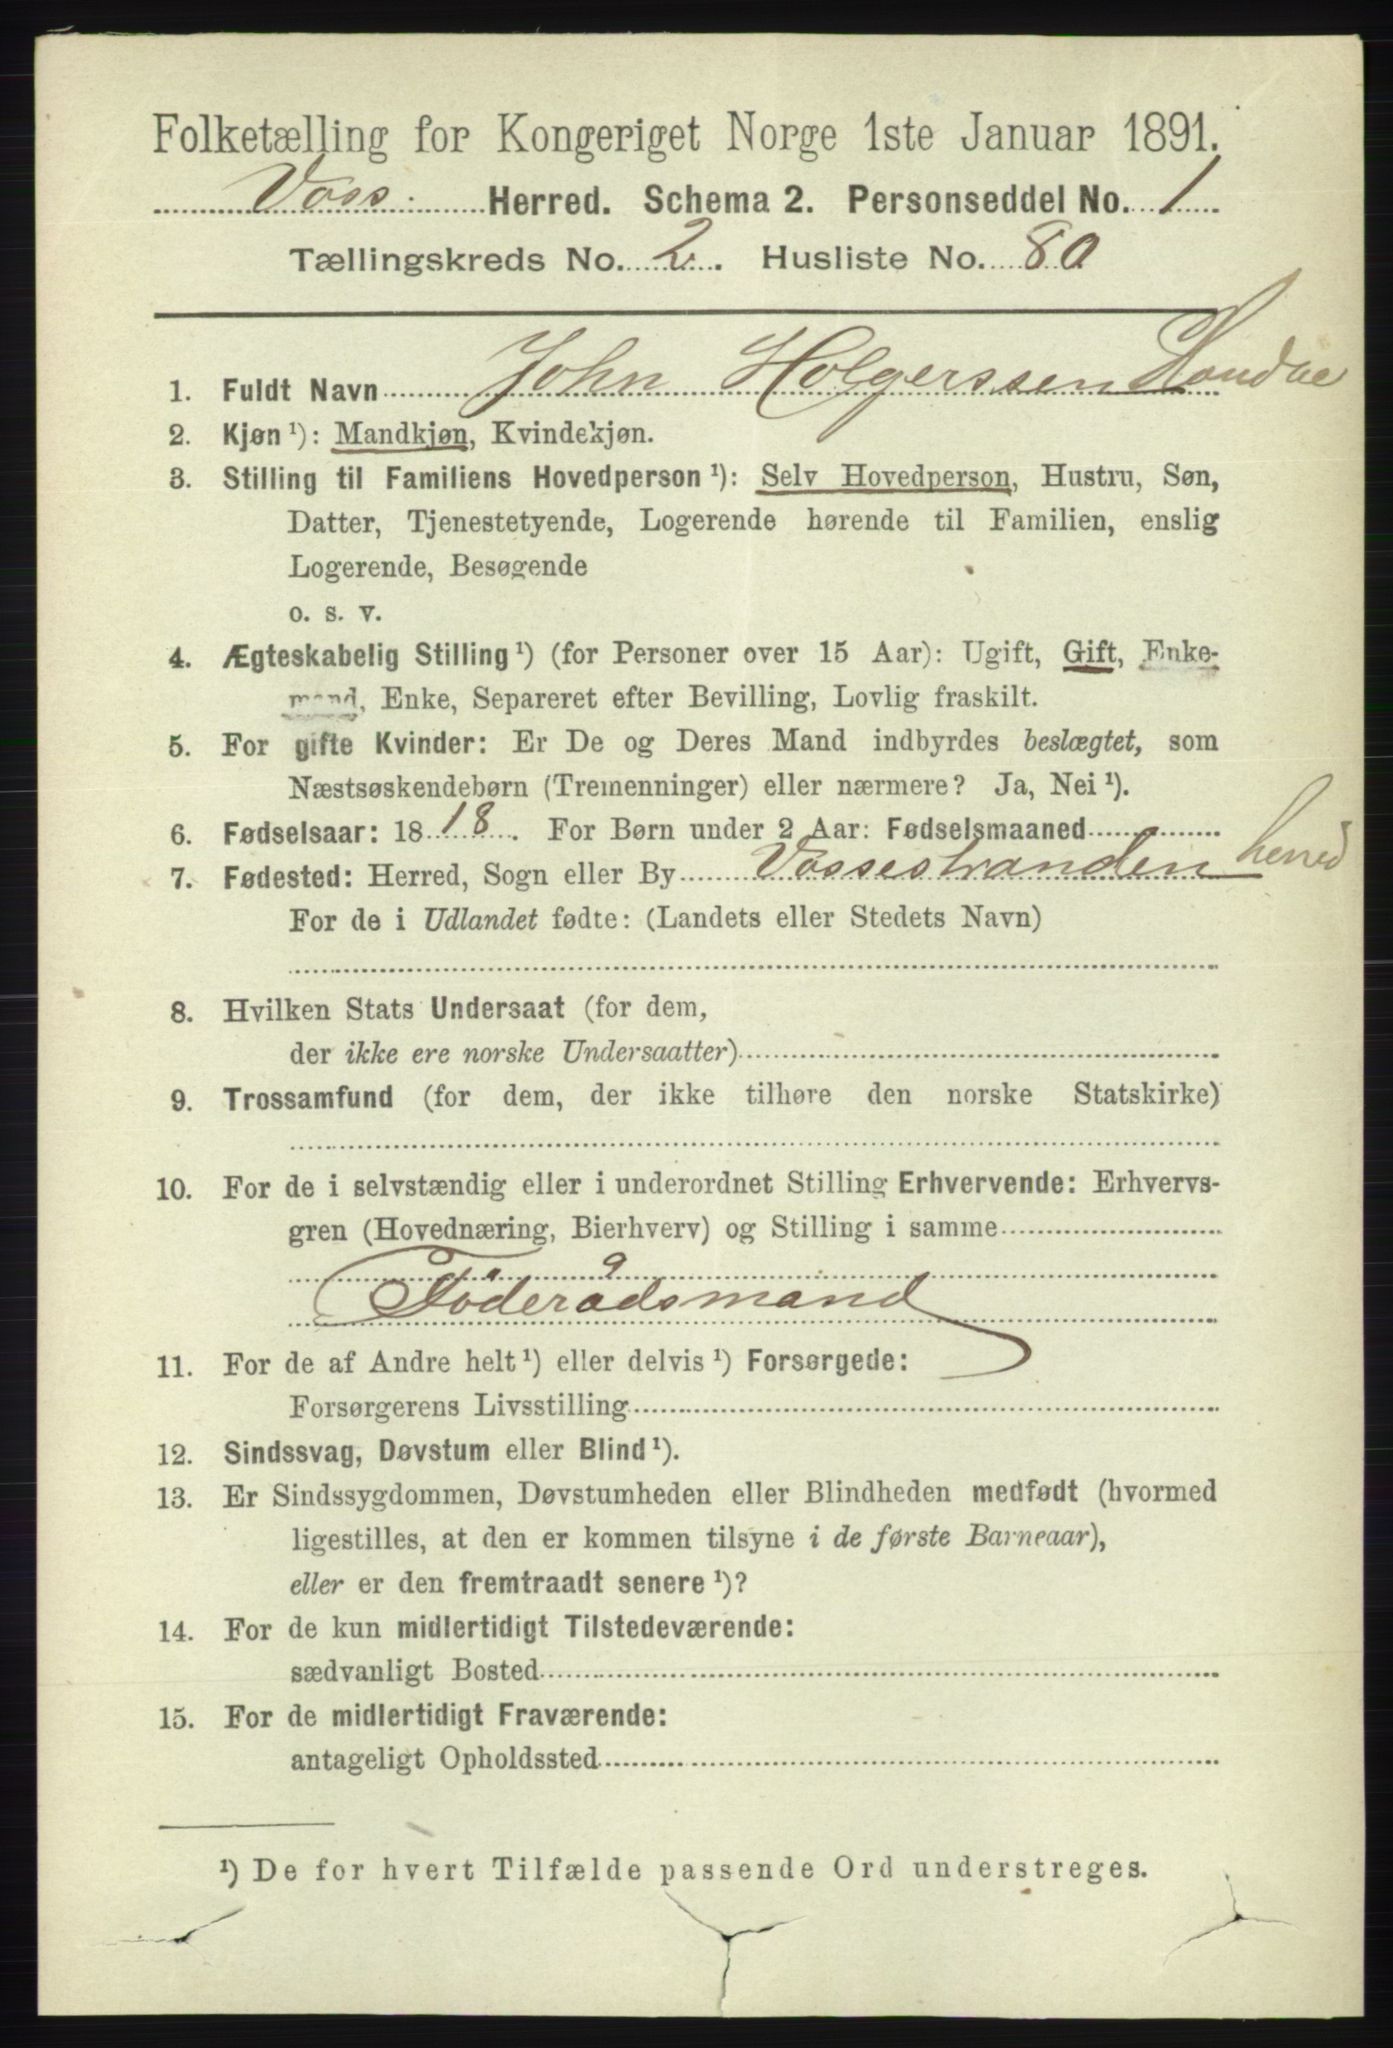 Folketælling for Kongeriget Norge 1ste Januar 1891.
Voss. Herred. Schema 2. Personseddel No. 1
Tællingskreds No. 2. Husliste No. 80
1. Fuldt Navn John Holgerssen
2. Kjøn ¹): Mandkjøn, Kvindekjøn.
3. Stilling til Familiens Hovedperson ¹): Selv Hovedperson, Hustru, Søn,
Datter, Tjenestetyende, Logerende hørende til Familien, enslig
Logerende, Besøgende
o. s. v.
4. Ægteskabelig Stilling ¹) (for Personer over 15 Aar): Ugift, Gift, Enke-
mand, Enke, Separeret efter Bevilling, Lovlig fraskilt.
5. For gifte Kvinder: Er De og Deres Mand indbyrdes beslægtet, som
Næstsøskendebørn (Tremenninger) eller nærmere? Ja, Nei ¹).
6. Fødselsaar: 1818. For Børn under 2 Aar: Fødselsmaaned
7. Fødested: Herred, Sogn eller By Vossestranden herred
For de i Udlandet fødte: (Landets eller Stedets Navn)
8. Hvilken Stats Undersaat (for dem,
der ikke ere norske Undersaatter)
9. Trossamfund (for dem, der ikke tilhøre den norske Statskirke)
10. For de i selvstændig eller i underordnet Stilling Erhvervende: Erhvervs-
gren (Hovednæring, Bierhverv) og Stilling i samme
Föderådsmand
11. For de af Andre helt ¹) eller delvis ¹) Forsørgede:
Forsørgerens Livsstilling
12. Sindssvag, Døvstum eller Blind ¹).
13. Er Sindssygdommen, Døvstumheden eller Blindheden medfødt (hvormed
ligestilles, at den er kommen tilsyne i de første Barneaar),
eller er den fremtraadt senere ¹)?
14. For de kun midlertidigt Tilstedeværende:
sædvanligt Bosted
15. For de midlertidigt Fraværende:
antageligt Opholdssted
¹) De for hvert Tilfælde passende Ord understreges.